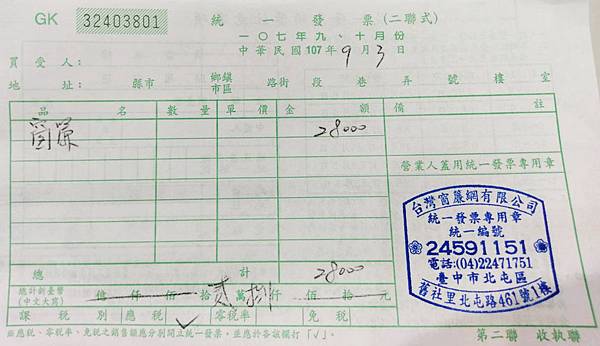 GK 32403801 統一發票(二聯式)
一〇七年九、十月份
中華民國107年9月3日
買受人:
地址: 縣市 鄉鎮市區 路街 段 巷 弄 號 樓 室
品名 數量 單價 金額 備註
窗簾 28000
營業人蓋用統一發票專用章
台灣窗簾網有限公司
統一發票專用章
統一編號
24591151
電話:(04)22471751
臺中市北屯區
舊社里北屯路461號1樓
總計 28000
總計新臺幣(中文大寫) 億 仟 佰 拾 貳 萬 捌 仟 佰 拾 元
課稅別 應稅 ✓ 零稅率 免稅
※應稅、零稅率、免稅之銷售額應分別開立統一發票,並應於各該欄打「✓」。
第二聯 收執聯